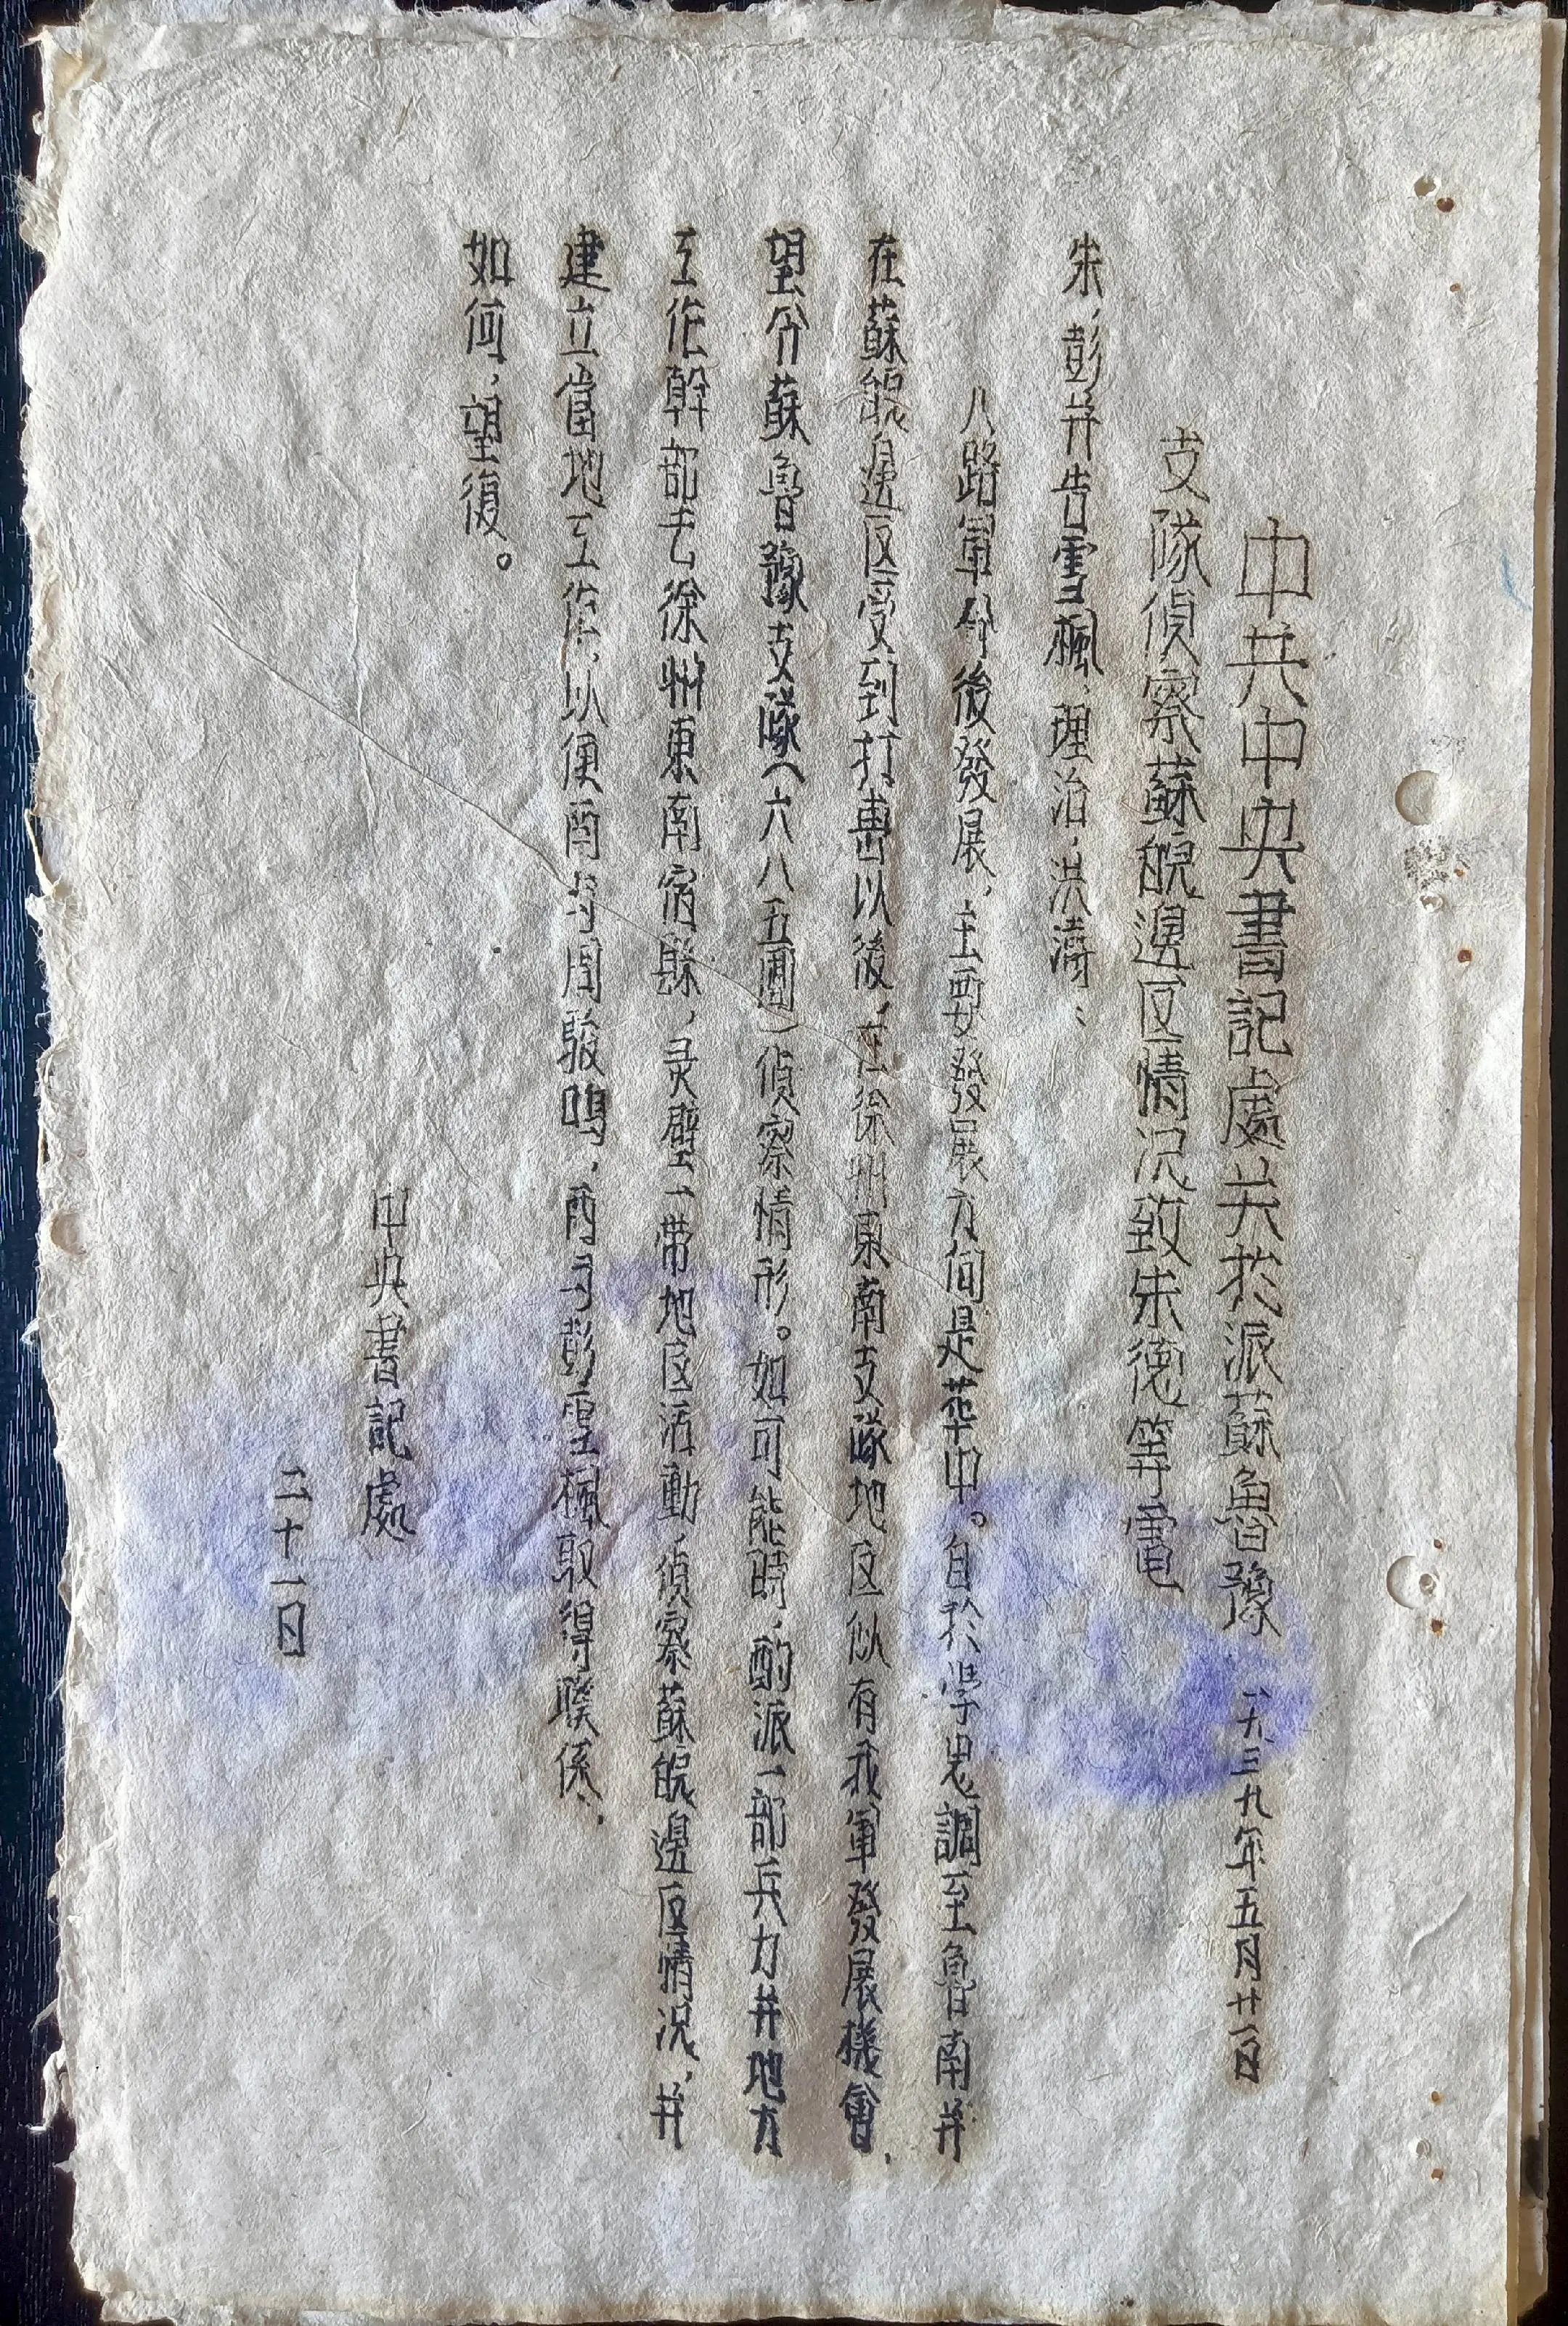 中共中央書記處关於派蘇魯豫 一九三九年五月廿一日
支隊偵察蘇皖邊区情况致朱德等電
朱,彭并告雪楓,理治,洪濤:
八路軍今後發展,主要發展方向是華中。自於學忠調至魯南并
在蘇皖邊区受到打擊以後,在徐州東南支隊地区似有我軍發展機會,
望令蘇魯豫支隊(六八五團)偵察情形。如可能時,酌派一部兵力并地方
工作幹部去徐州東南宿縣,灵璧一带地区活動,偵察蘇皖邊区情况,并
建立當地工作,以便西与周駿鳴,西与彭雪楓取得聯係,
如何,望復。
中央書記處
二十一日